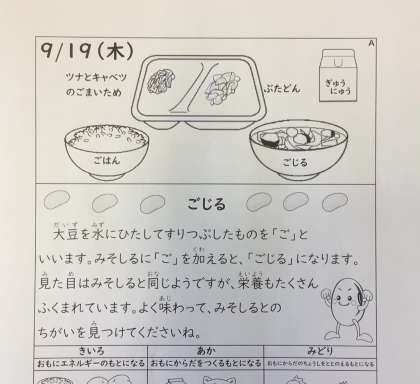 A
9/19(木)
ツナとキャベツ
のごまいため
ぶたどん
ぎゅう
にゅう
ごはん
ごじる
ごじる
大豆を水にひたしてすりつぶしたものを「ご」と
いいます。みそしるに「ご」を加えると、「ごじる」になります。
見た目はみそしると同じようですが、栄養もたくさん
ふくまれています。よく味わって、みそしるとの
ちがいを見つけてくださいね。
きいろ
あか
みどり
おもにエネルギーのもとになる
おもにからだをつくるもとになる
おもにからだのちょうしをととのえるもとになる